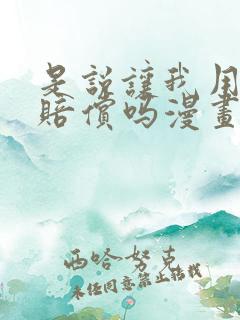 是说让我用
赔偿吗漫画
西哈努克
未经同意禁止转载